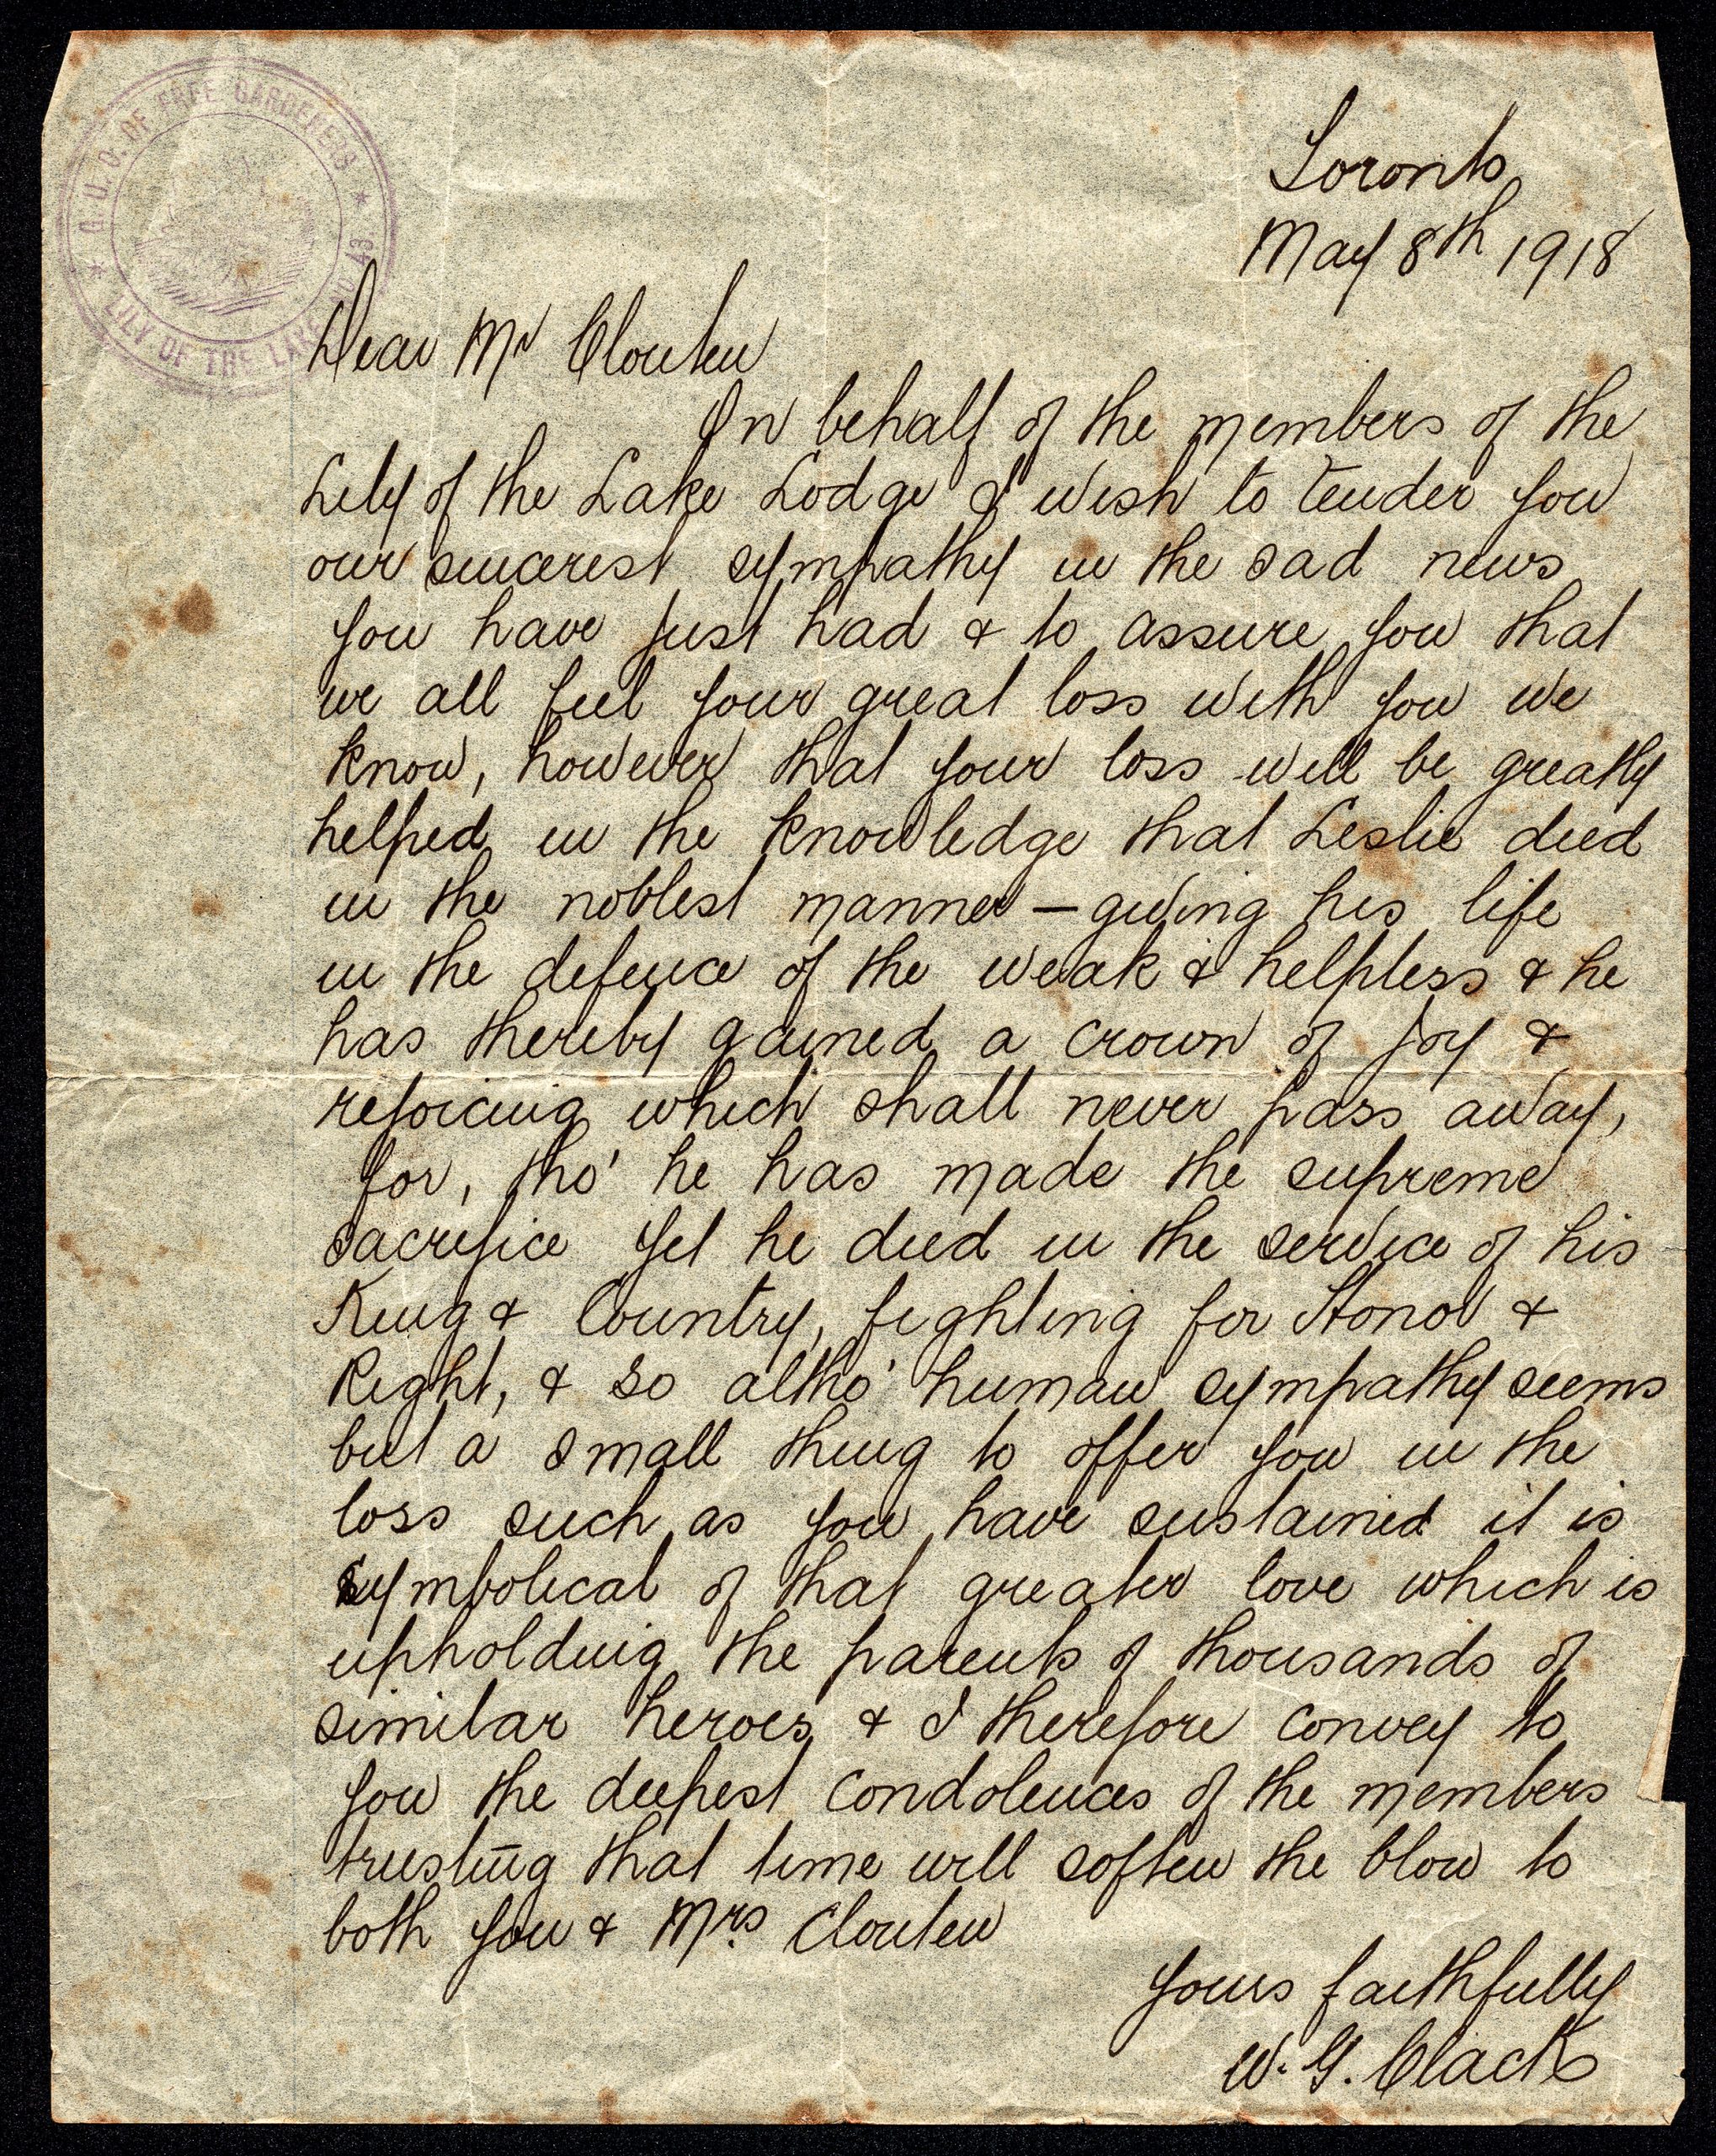 G. U. O. OF FREE GARDENERS
LILY OF THE LAKE NO. 43
Toronto
May 8th 1918
Dear Mr Clouten
On behalf of the members of the
Lily of the Lake Lodge I wish to tender you
our sincerest sympathy in the sad news
you have just had & to assure you that
we all feel your great loss with you we
know, however that your loss will be greatly
helped in the knowledge that Leslie died
in the noblest manner — giving his life
in the defence of the weak & helpless & he
has thereby gained a crown of joy &
rejoicing which shall never pass away,
for, tho' he has made the supreme
sacrifice yet he died in the service of his
King & Country, fighting for Honor &
Right, & so altho' human sympathy seems
but a small thing to offer you in the
loss such as you have sustained it is
symbolical of that greater love which is
upholding the parents of thousands of
similar heroes & I therefore convey to
you the deepest condolences of the members
trusting that time will soften the blow to
both you & Mrs. Clouten
Yours faithfully
W. G. Clack